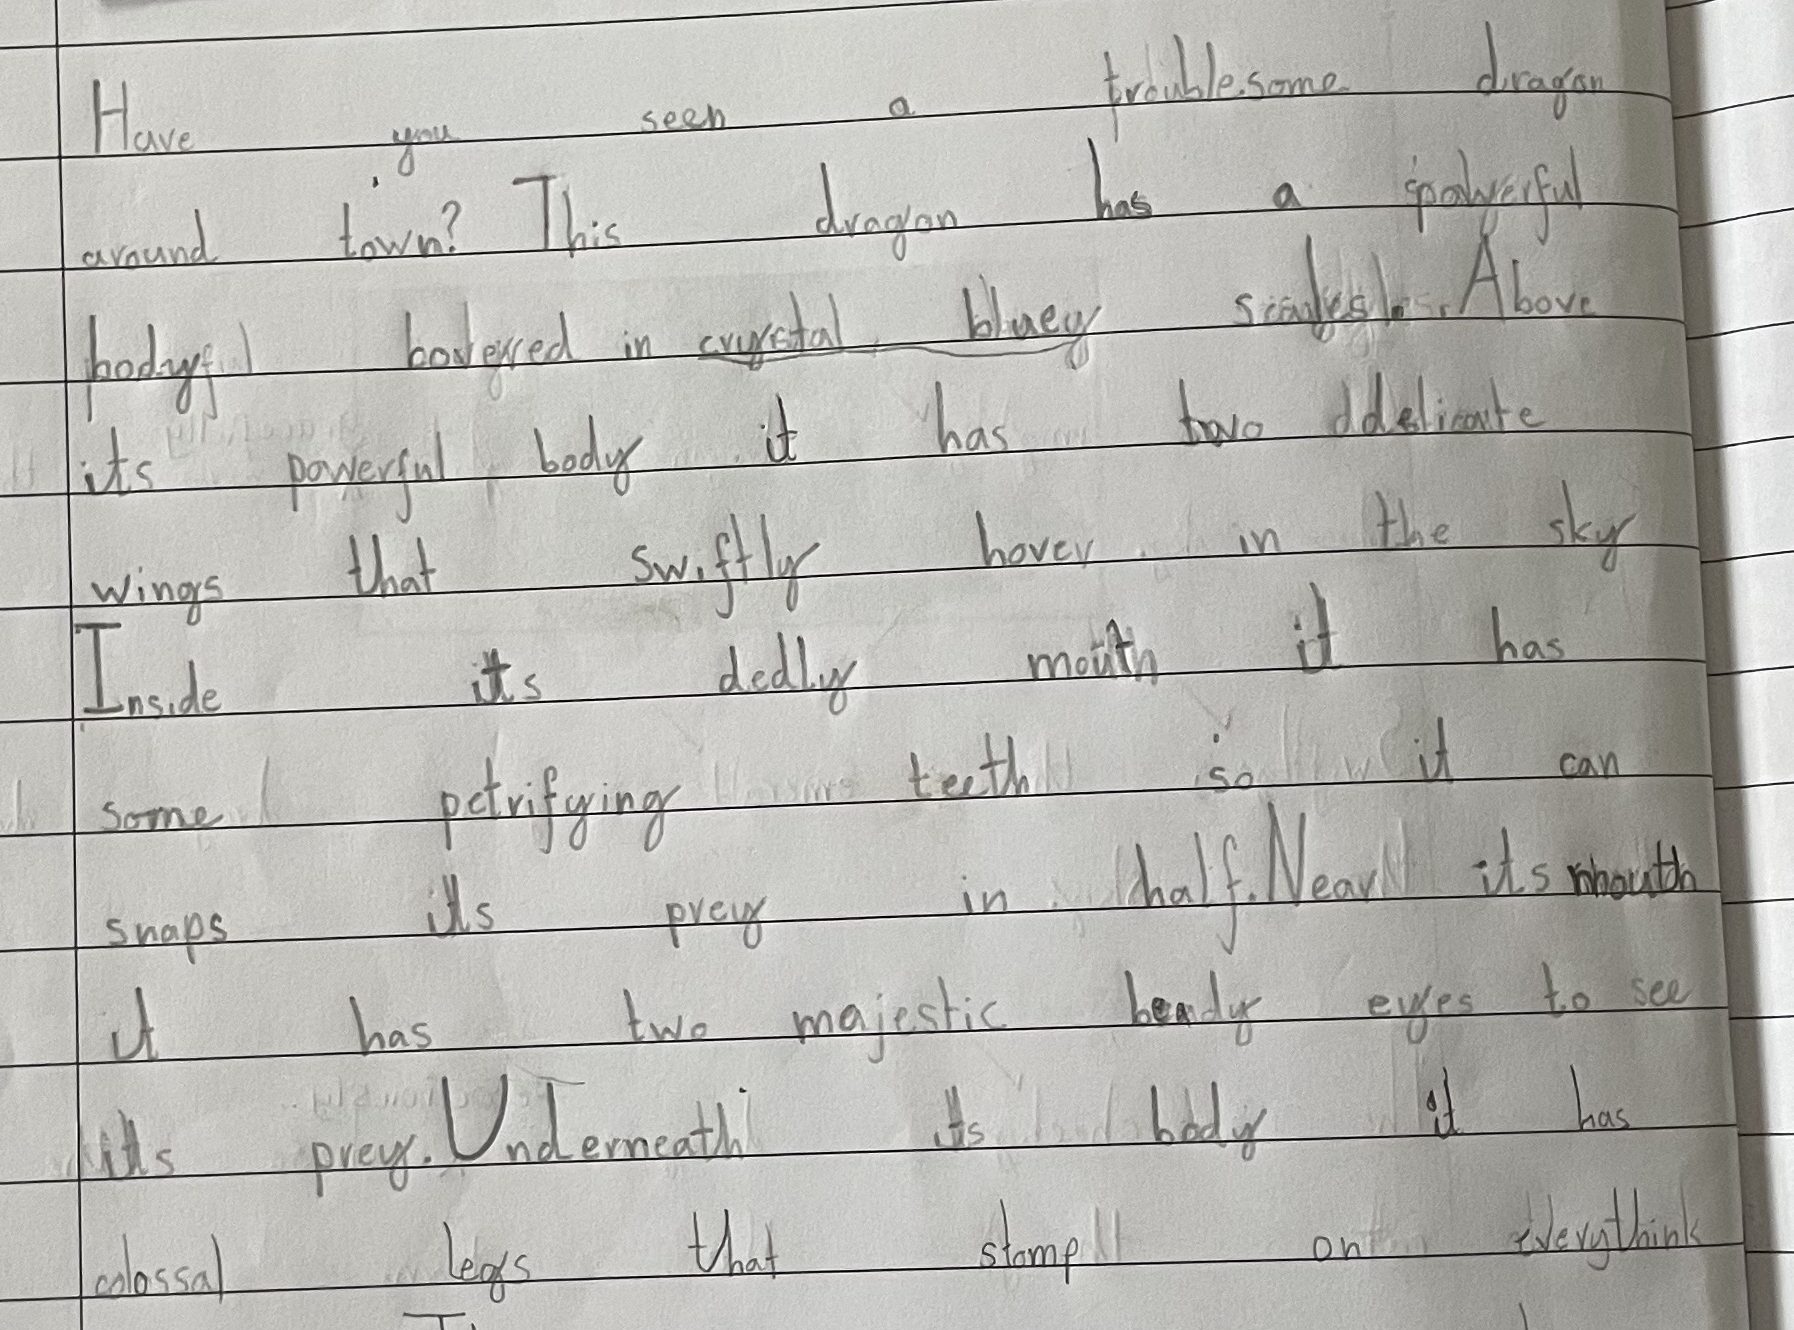 Have you seen a troublesome dragon
around town? This dragon has a powerful
body covered in crystal bluey scales. Above
its powerful body it has two delicate
wings that swiftly hover in the sky
Inside its dedly mouth it has
some petrifying teeth so it can
snaps its prey in half. Near its mouth
it has two majestic beady eyes to see
its prey. Underneath its body it has
colossal legs that stomp on everythink